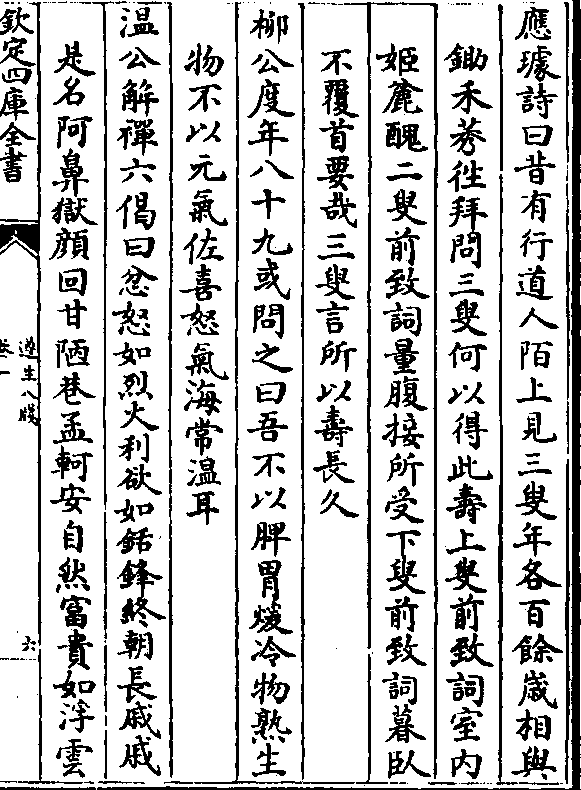 應璩詩曰昔有行道人陌上見三叟年各百餘歲相與
鋤禾莠徃拜問三叟何以得此壽上叟前致詞室内
姬麄醜二叟前致詞量腹接所受下叟前致詞暮臥
不覆首要哉三叟言所以壽長久
柳公度年八十九或問之曰吾不以脾胃煖冷物熟生
物不以元氣佐喜怒氣海常温耳
温公解禪六偈曰忿怒如烈火利欲如銛鋒終朝長戚戚
是名阿鼻獄顔回甘陋巷孟軻安自然富貴如浮雲
欽定四庫全書
遵生八牋
卷一
六